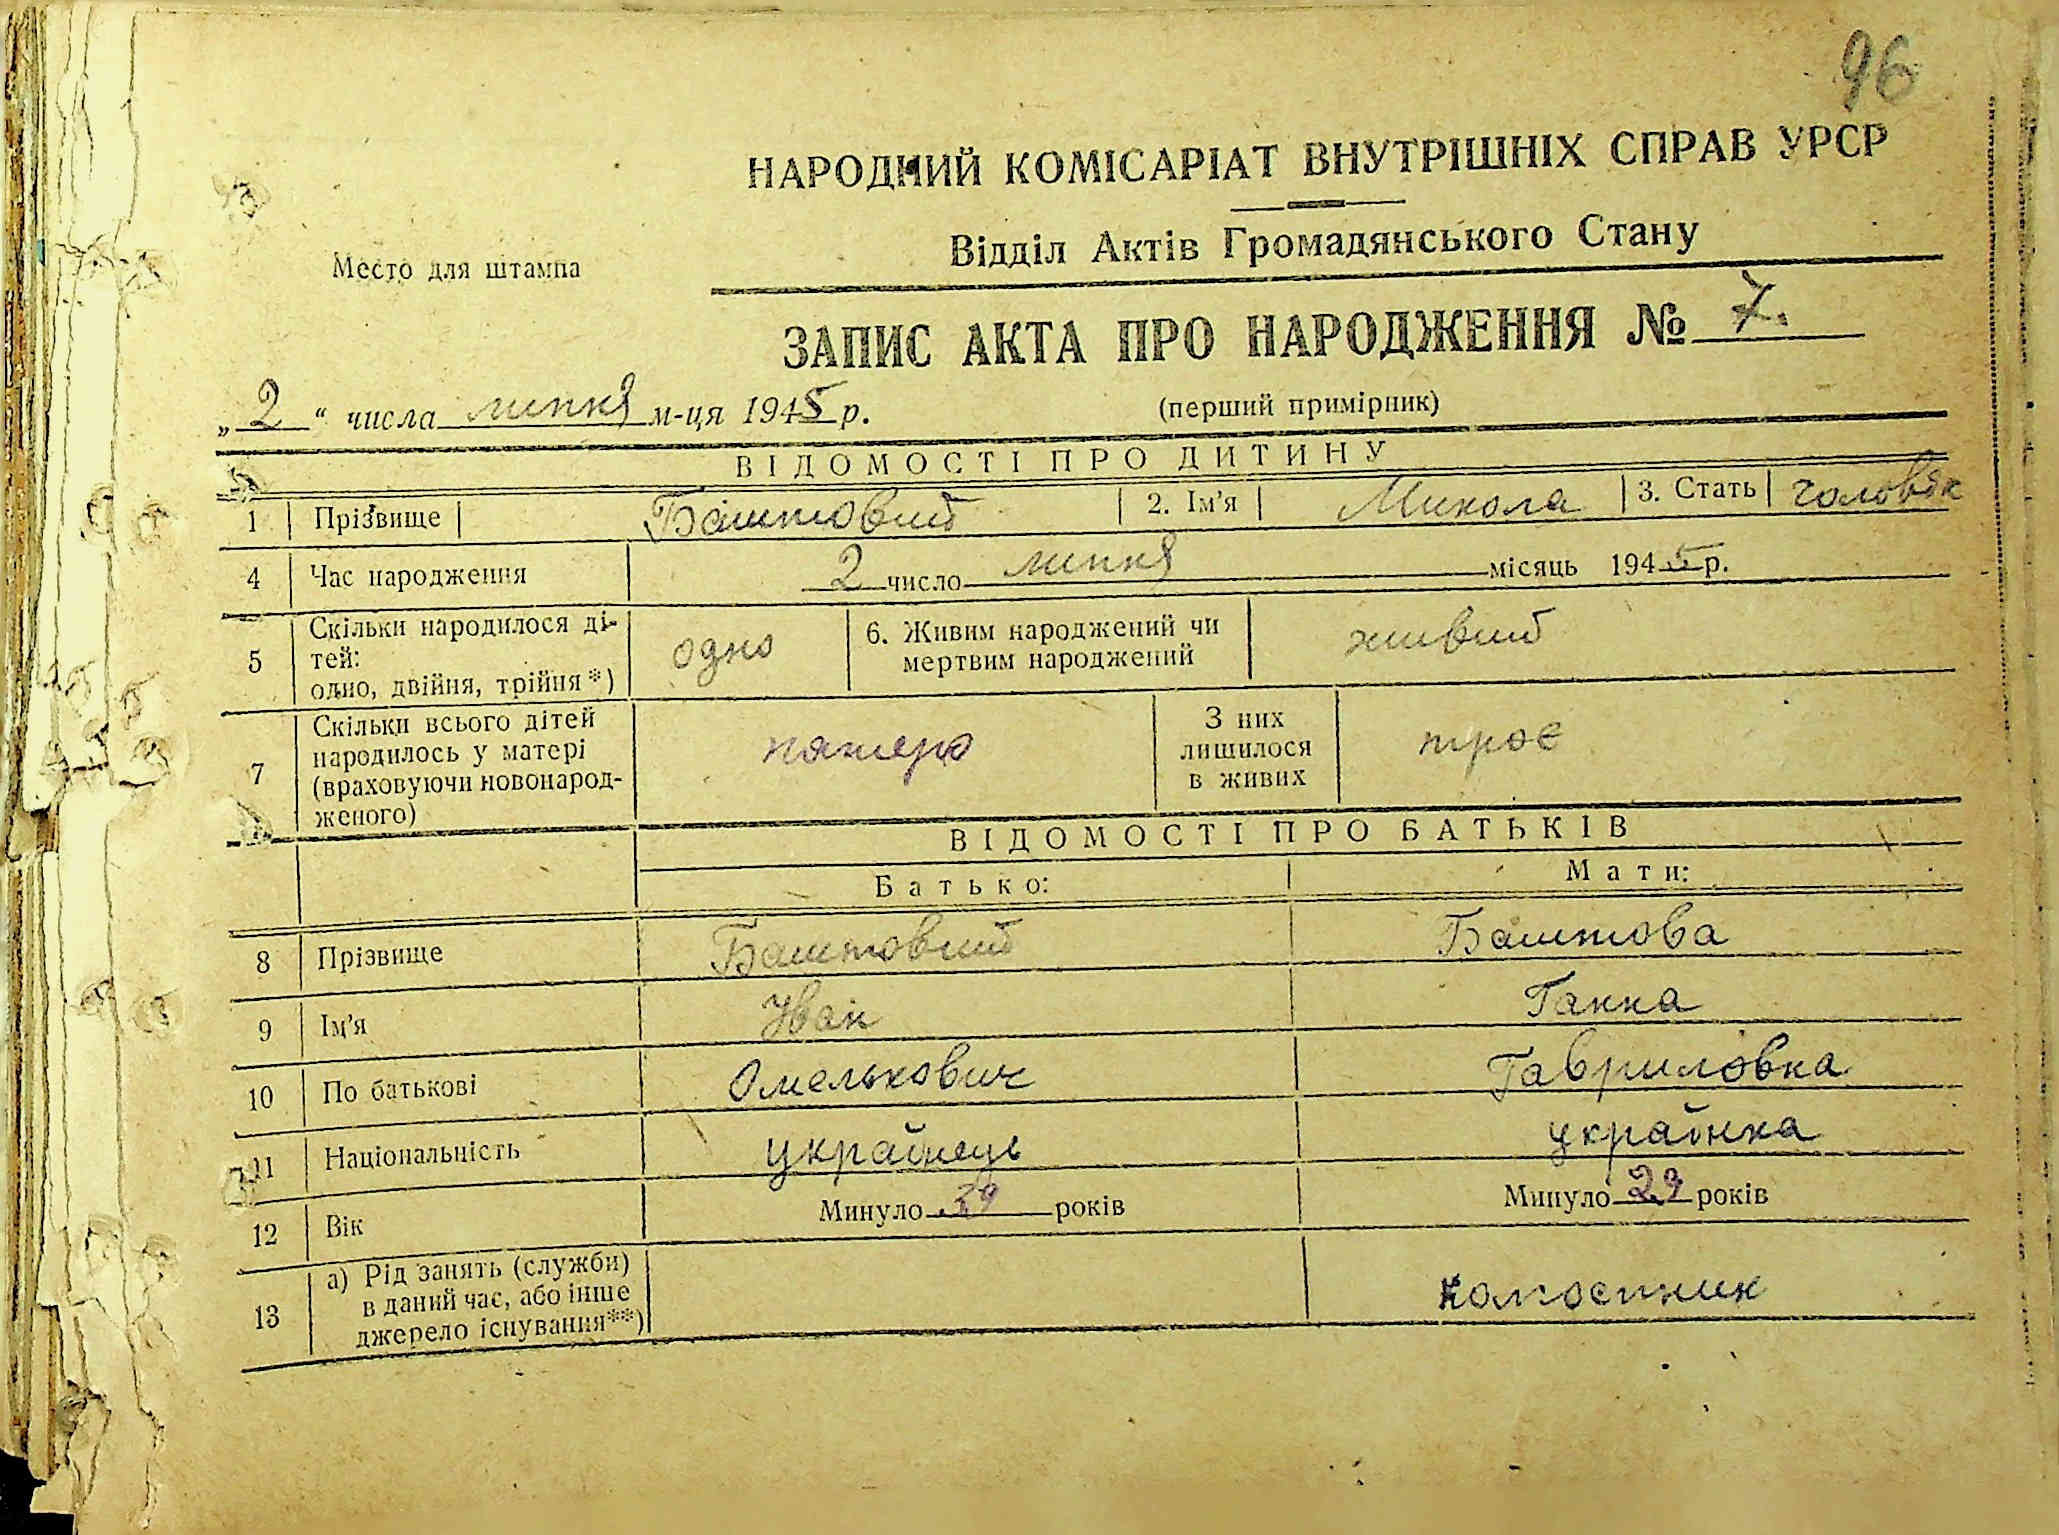 96
НАРОДНИЙ КОМІСАРІАТ ВНУТРІШНІХ СПРАВ УРСР
Відділ Актів Громадянського Стану
Место для штампа
ЗАПИС АКТА ПРО НАРОДЖЕННЯ № 7.
„2“ числа липня м-ця 1945 р.
(перший примірник)
ВІДОМОСТІ ПРО ДИТИНУ
1 Прізвище Баштовий 2. Ім'я Микола 3. Стать чоловік
4 Час народження 2 число липня місяць 1945 р.
5 Скільки народилося ді-
тей:
одно, двійня, трійня*) одно
6. Живим народжений чи
мертвим народжений живий
7 Скільки всього дітей
народилось у матері
(враховуючи новонарод-
женого) пятеро
З них
лишилося
в живих троє
ВІДОМОСТІ ПРО БАТЬКІВ
Батько: Мати:
8 Прізвище Баштовий Баштова
9 Ім'я Іван Ганна
10 По батькові Омелькович Гавриловна
11 Національність українець українка
12 Вік Минуло 39 років Минуло 29 років
13 а) Рід занять (служби)
в даний час, або інше
джерело існування**) колгоспник